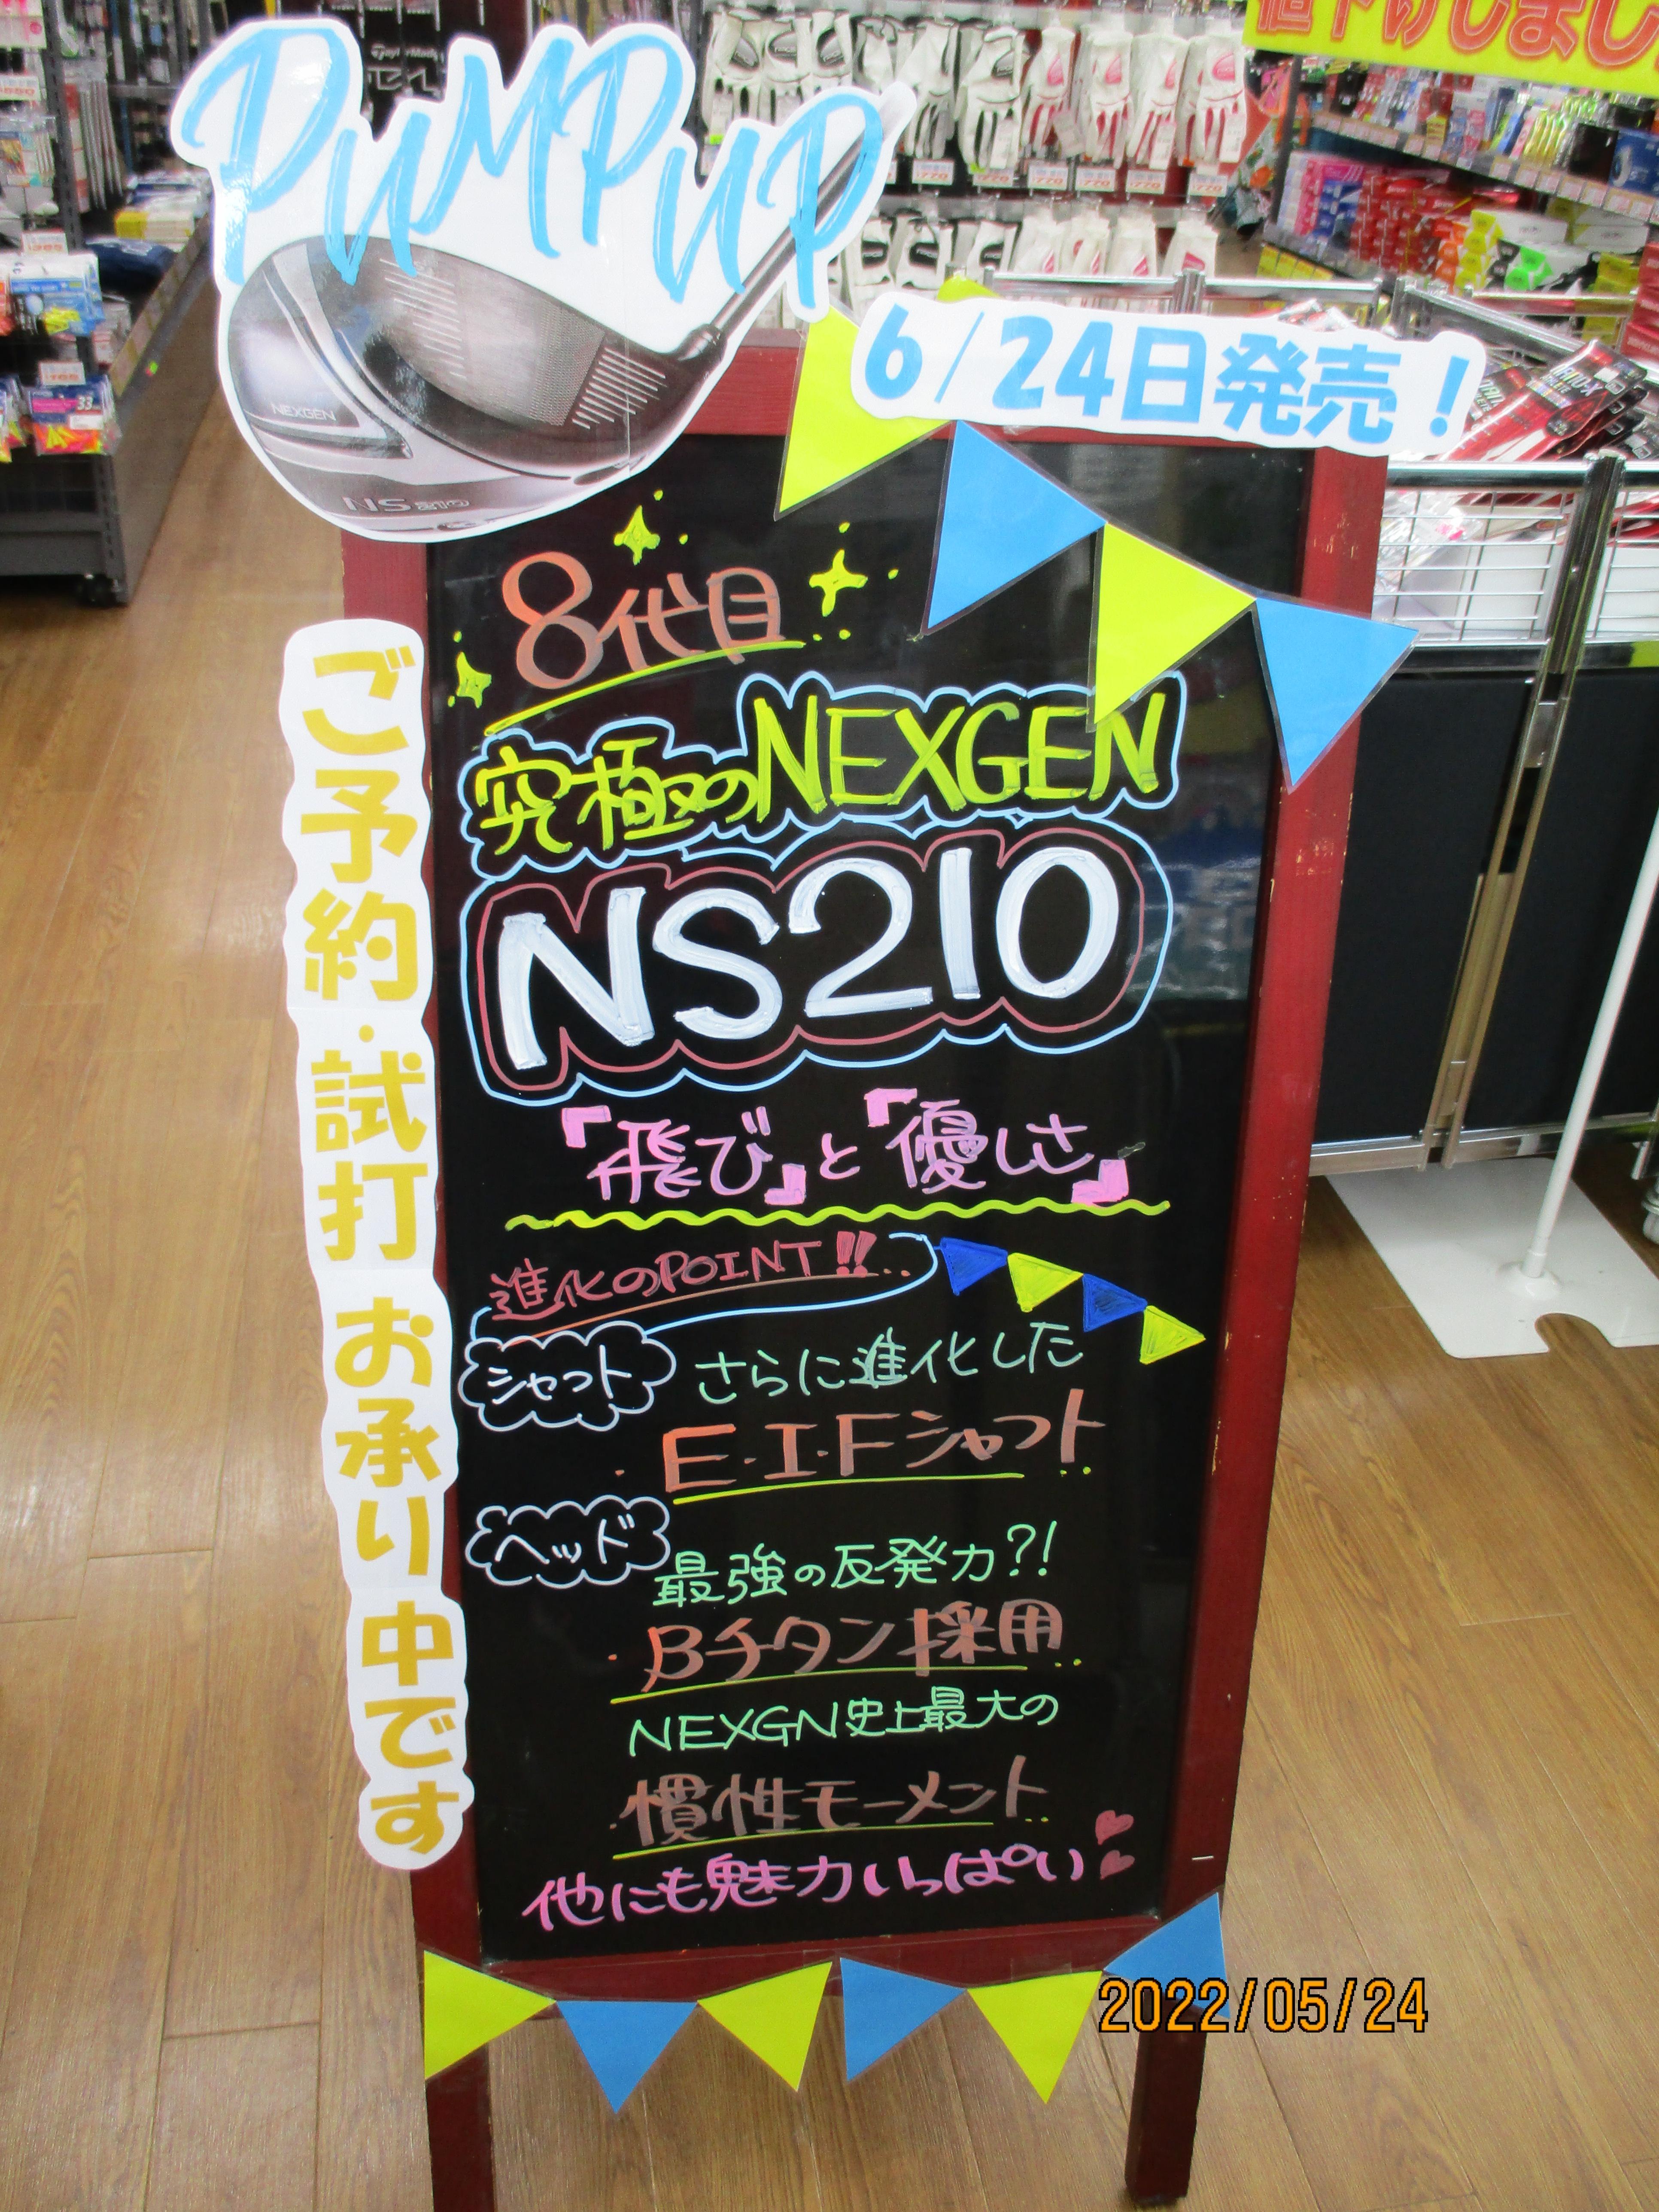 PUMPUP
値下げしまし
NEXGEN
NS 210
6/24日発売!
8代目
究極のNEXGEN
NS210
『飛び』と『優しさ』
進化のPOINT!!
シャフト
さらに進化した
E・I・Fシャフト
ヘッド
最強の反発力?!
βチタン採用
NEXGN史上最大の
慣性モーメント
他にも魅力いっぱい
ご予約・試打 お承り中です
2022/05/24